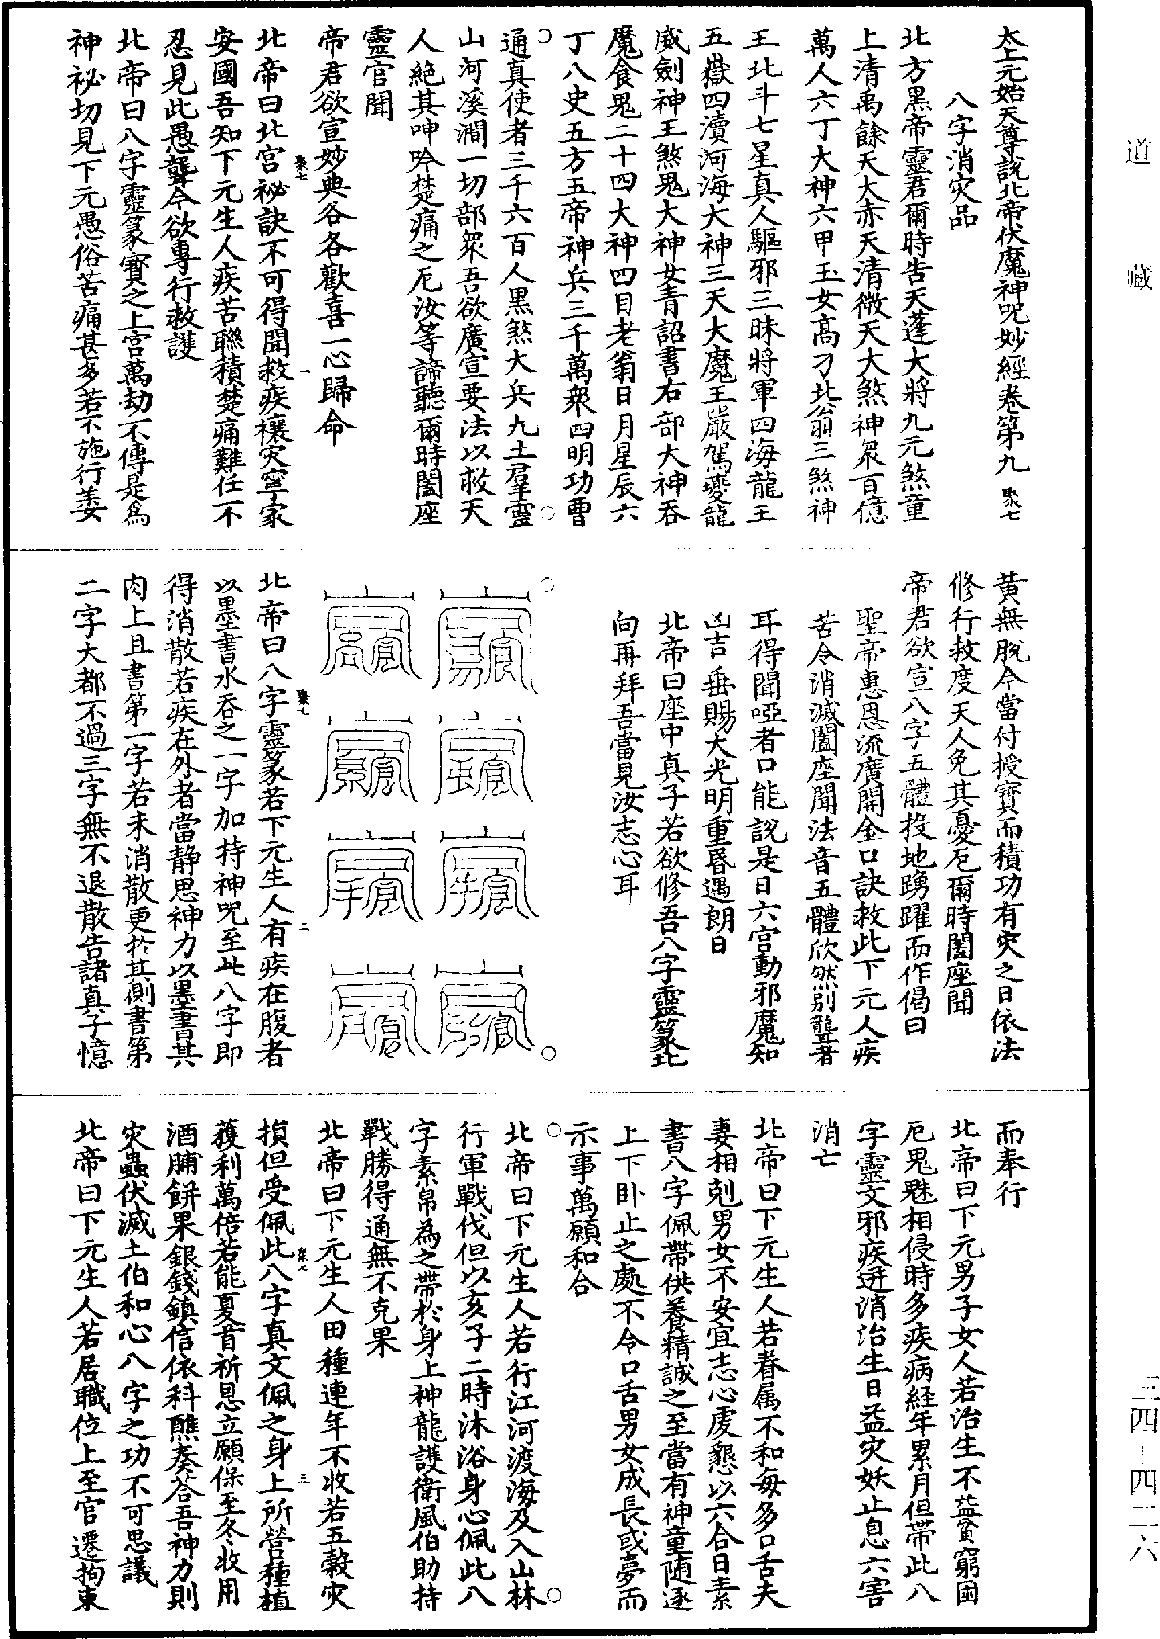 太上元始天尊說北帝伏魔神呪妙經卷第九 聚七
八字消灾品
北方黑帝靈君爾時告天蓬大將九元煞童
上清禹餘天大赤天清微天大煞神衆百億
萬人六丁大神六甲玉女高刁北翁三煞神
王北斗七星真人驅邪三昧將軍四海龍王
五嶽四瀆河海大神三天大魔王嚴駕夔龍
威劍神王煞鬼大神女青詔書右部大神吞
魔食鬼二十四大神四目老翁日月星辰六
丁八史五方五帝神兵三千萬衆四明功曹
通真使者三千六百人黑煞大兵九土羣靈
山河溪澗一切部衆吾欲廣宣要法以救天
人絕其呻吟楚痛之厄汝等諦聽爾時闔座
靈官聞
帝君欲宣妙典各各歡喜一心歸命
北帝曰北宮祕訣不可得聞救疾禳灾寧家
安國吾知下元生人疾苦聯積楚痛難任不
忍見此愚聾今欲專行救護
北帝曰八字靈篆寶之上宮萬劫不傳是爲
神祕切見下元愚俗苦痛甚多若不施行萎
黄無脫今當付授寶而積功有灾之日依法
修行救度天人免其憂厄爾時闔座聞
帝君欲宣八字五體投地踴躍而作偈曰
聖帝惠恩流廣開金口訣救此下元人疾
苦令消滅闔座聞法音五體欣然別聾者
耳得聞啞者口能說是日六宮動邪魔知
凶吉垂賜大光明重昬遇朗日
北帝曰座中真子若欲修吾八字靈篆北
向再拜吾當見汝志心耳
北帝曰八字靈篆若下元生人有疾在腹者
以墨書水吞之一字加持神呪至此八字即
得消散若疾在外者當靜思神力以墨書其
肉上且書第一字若未消散更於其側書第
二字大都不過三字無不退散告諸真子憶
而奉行
北帝曰下元男子女人若治生不益貧窮困
厄鬼魅相侵時多疾病經年累月但帶此八
字靈文邪疾迸消治生日益灾妖止息六害
消亡
北帝曰下元生人若眷属不和每多口舌夫
妻相剋男女不安宜志心虔懇以六合日素
書八字佩帶供養精誠之至當有神童随逐
上下卧止之處不令口舌男女成長或夢而
示事萬願和合
北帝曰下元生人若行江河渡海及入山林
行軍戰伐但以亥子二時沐浴身心佩此八
字素帛為之帶於身上神龍護衛風伯助持
戰勝得通無不克果
北帝曰下元生人田種連年不收若五穀灾
損但受佩此八字真文佩之身上所營種植
獲利萬倍若能夏首祈恩立願保至冬收用
酒脯餅果銀錢鎮信依科醮奏荅吾神力則
灾蟲伏滅土伯和心八字之功不可思議
北帝曰下元生人若居職位上至官遷拘束
聚七
一
聚七
二
聚七
三
道藏
三四-四二六